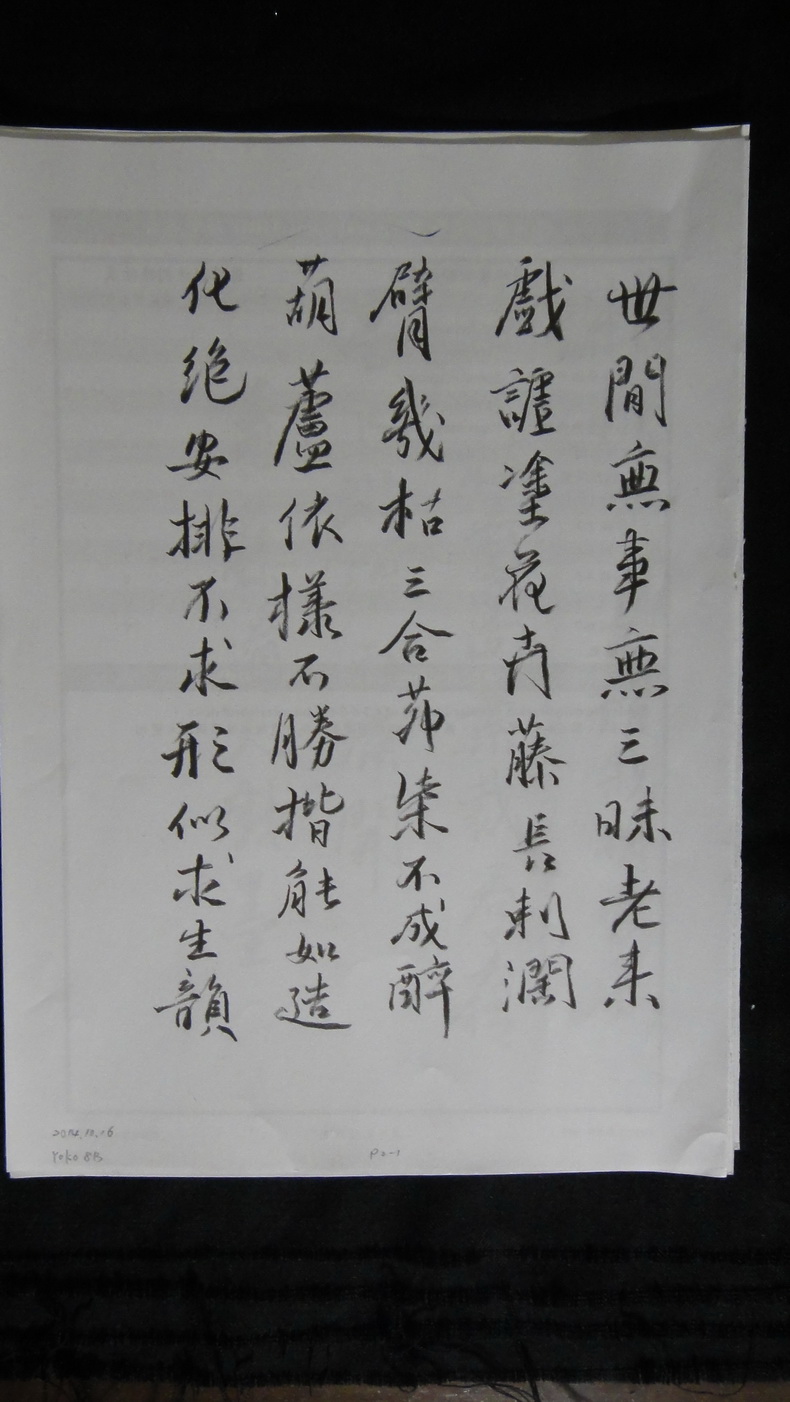 世間無事無三昧老来
戯謔塗花卉藤長刺濶
臂幾枯三合茆柴不成醉
葫蘆依樣不勝揩能如造
化絶安排不求形似求生韻
Yoko 8B
P2-1